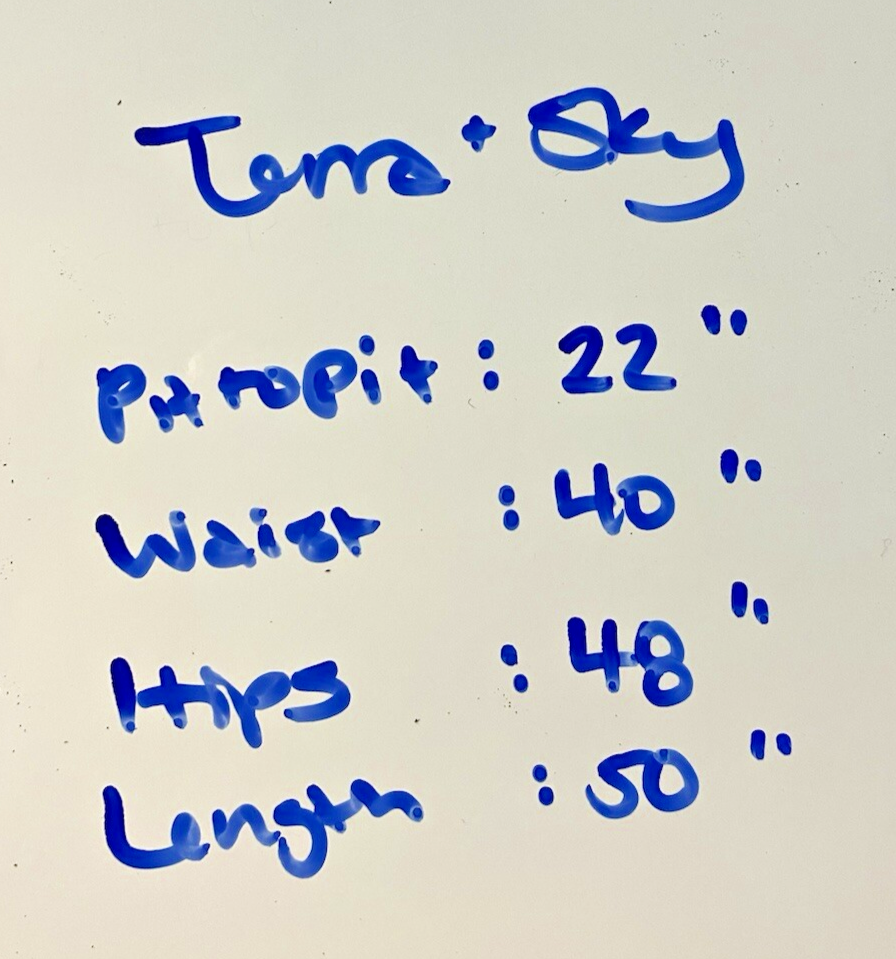 Terra + Sky
Pit to Pit : 22"
Waist : 40"
Hips : 48"
Length : 50"